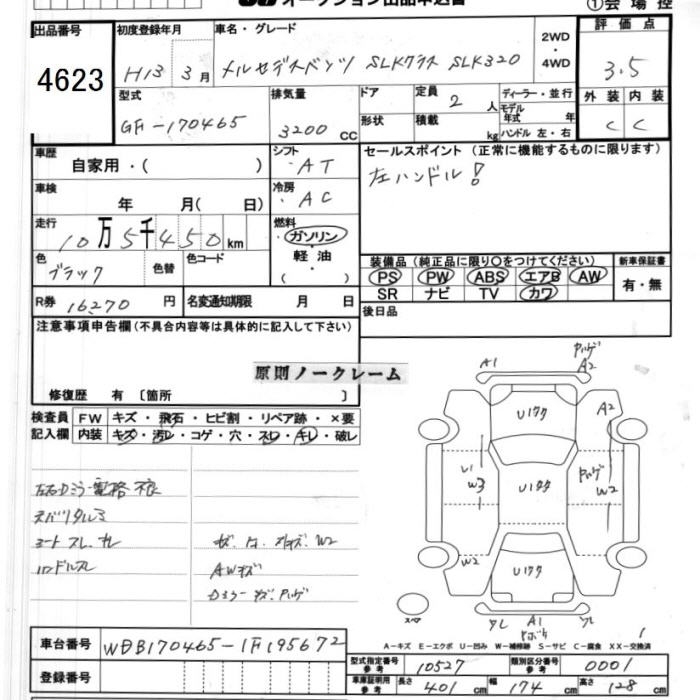 オークション出品申込書
①会場控
出品番号
4623
初度登録年月
H13 3月
車名・グレード
メルセデスベンツ SLKクラス SLK320
2WD・4WD
評価点
3.5
型式
GF-170465
排気量
3200 CC
ドア
形状
定員 2 人
積載 kg
ディーラー・並行
モデル年式 年
ハンドル 左・右
外装 内装
C C
車歴
自家用・( )
シフト
AT
車検
年 月( 日)
冷房
AC
セールスポイント (正常に機能するものに限ります)
左ハンドル!
走行
10万5千450km
燃料
ガソリン・軽油・( )
色
ブラック
色替
色コード
装備品(純正品に限り○をつけてください)
PS PW ABS エアB AW
SR ナビ TV カワ
新車保証書
有・無
R券 16270円
名変通知期限 月 日
後日品
注意事項申告欄(不具合内容等は具体的に記入して下さい)
原則ノークレーム
修復歴 有 〔箇所 〕
検査員記入欄
FW キズ・飛石・ヒビ割・リペア跡・×要
内装 キズ・汚レ・コゲ・穴・スレ・キレ・破レ
左右Dミラー電格不良
シートスレ、キレ
ハンドルスレ
AWキズ
A1
A2
Uワクワク
A2
W3
Uワクワク
W2
W2
Uワクワク
A1
スペア
A-キズ E-エクボ U-凹み W-補修跡 S-サビ C-腐食 XX-交換済
車台番号 WDB170465-1F195672
登録番号
型式指定番号 参考 10527
類別区分番号 参考 0001
車庫証明用 参考 長さ 401 cm 幅 174 cm 高さ 128 cm